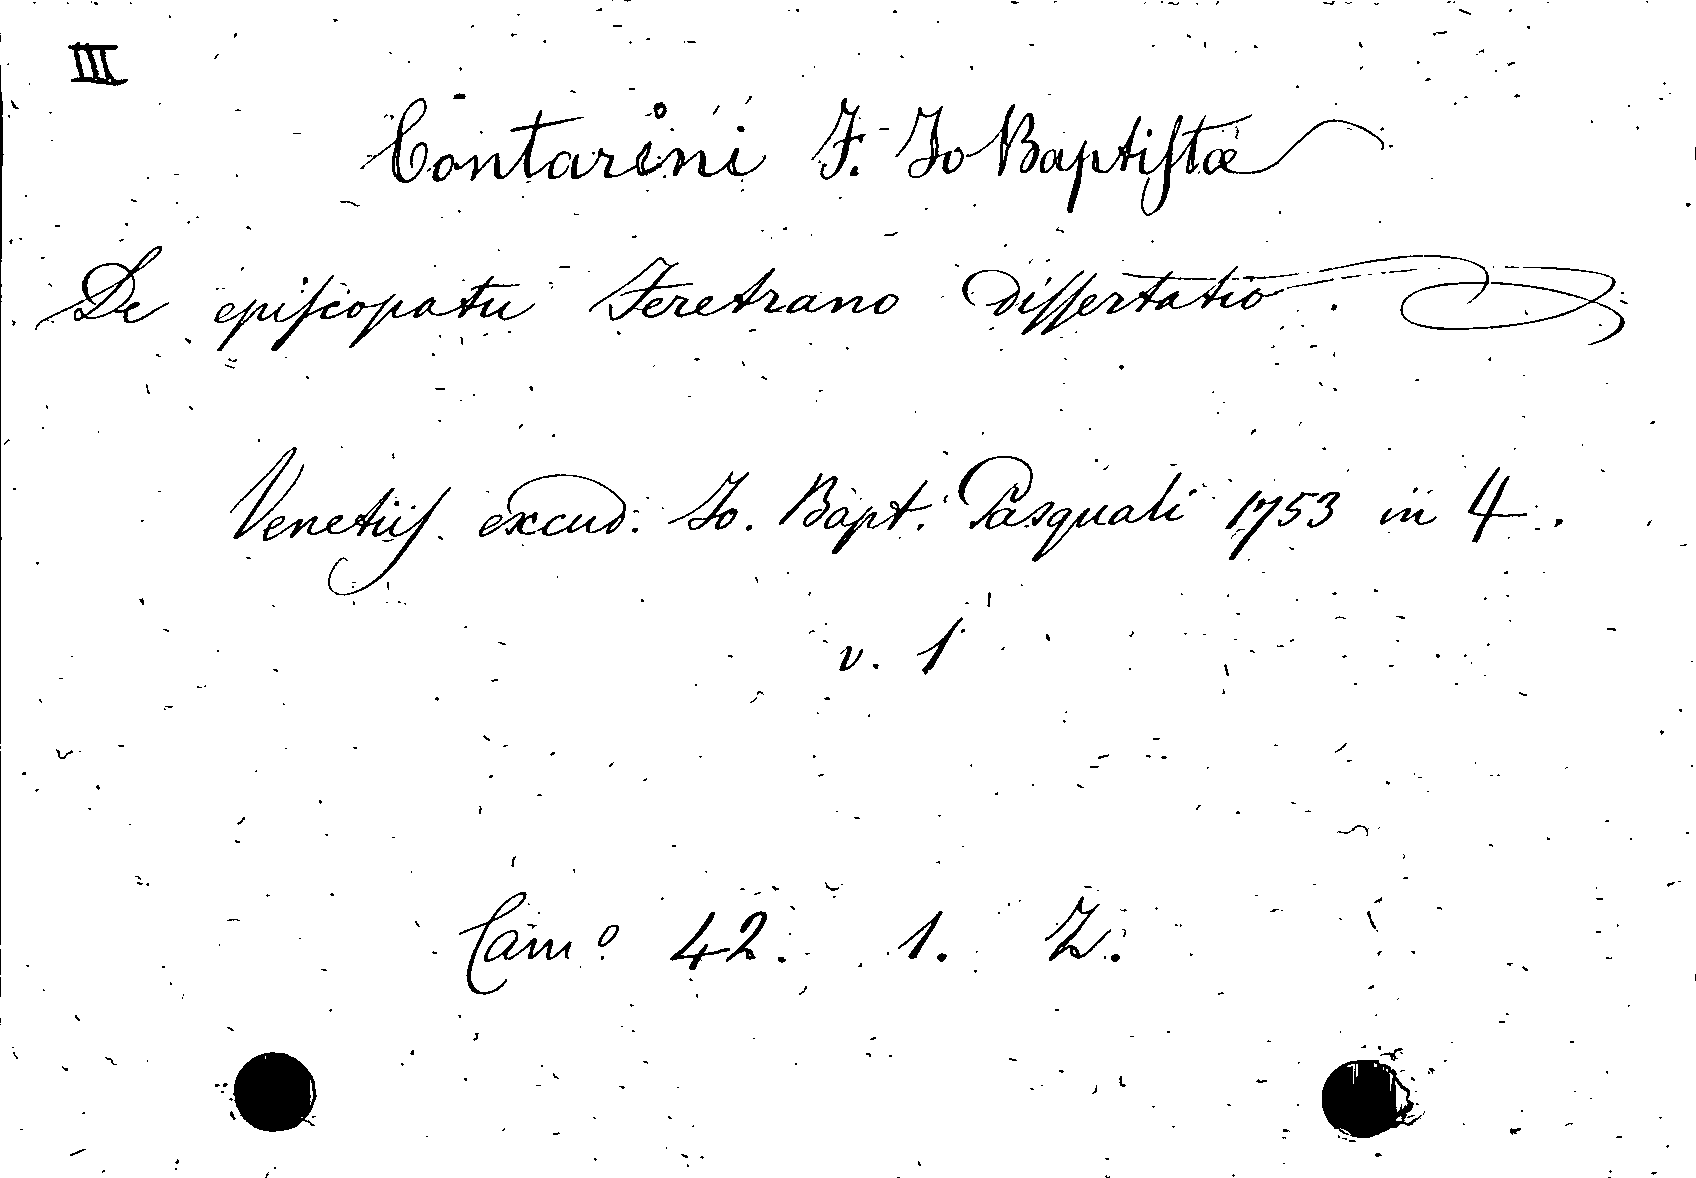 III
Contarini F. Jo Baptiſtæ
De epiſcopatu Feretrano diſſertatio.
Venetiiſ. excud. Jo. Bapt. Pasquali 1753 in 4.
v. 1
Cam° 42. 1. Z.